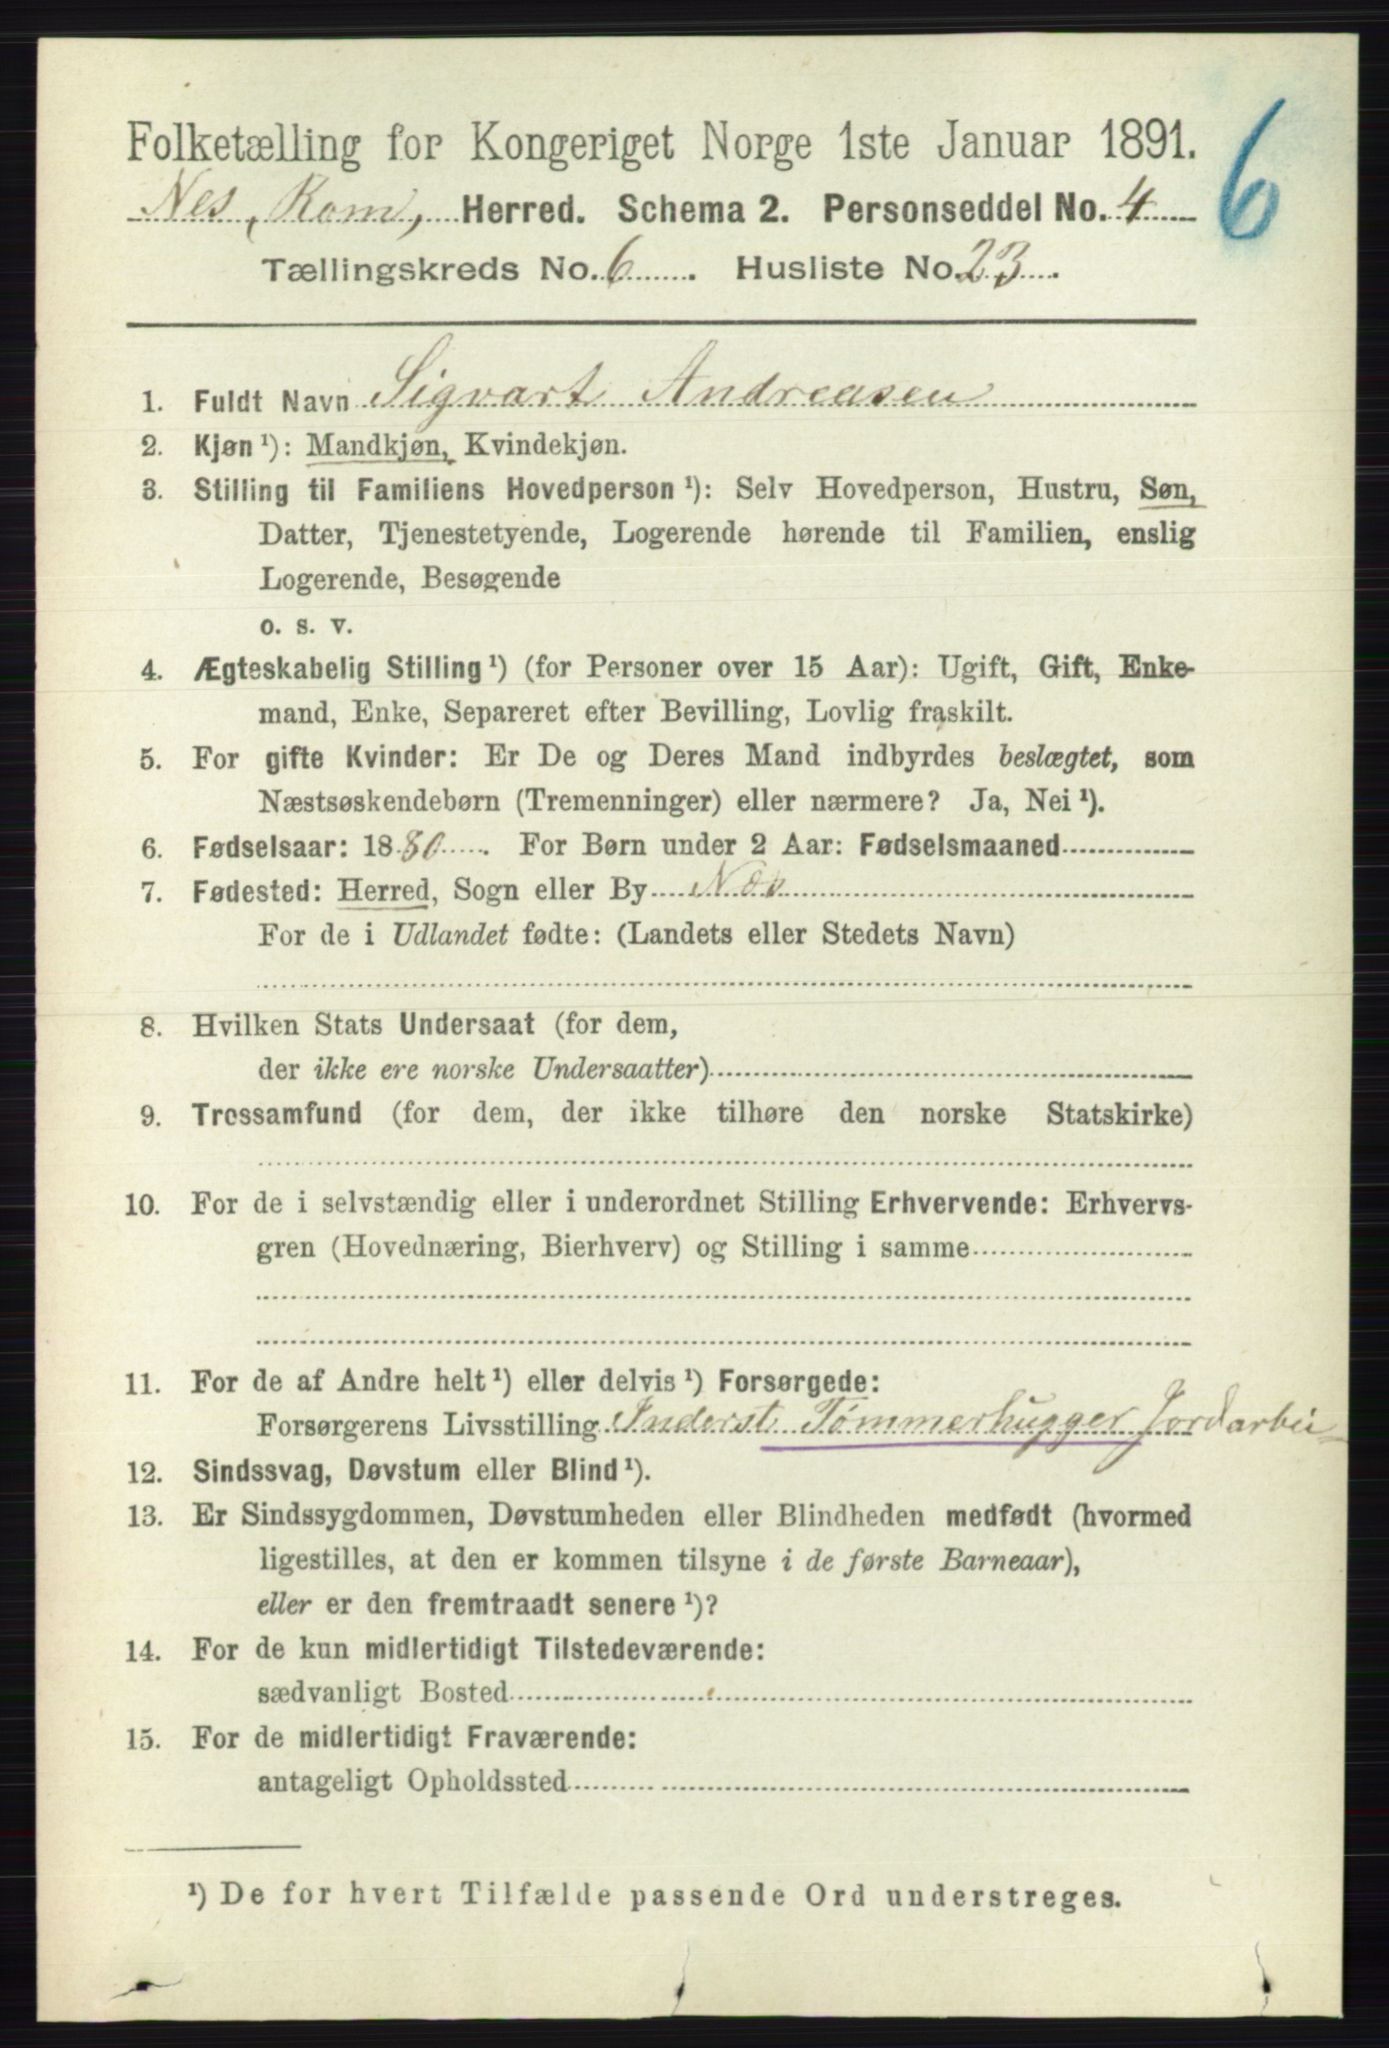 Folketælling for Kongeriget Norge 1ste Januar 1891.
6
Nes, Rom, Herred. Schema 2. Personseddel No. 4
Tællingskreds No. 6. Husliste No. 23.
1. Fuldt Navn Sigvart Andreasen
2. Kjøn ¹): Mandkjøn, Kvindekjøn.
3. Stilling til Familiens Hovedperson ¹): Selv Hovedperson, Hustru, Søn,
Datter, Tjenestetyende, Logerende hørende til Familien, enslig
Logerende, Besøgende
o. s. v.
4. Ægteskabelig Stilling ¹) (for Personer over 15 Aar): Ugift, Gift, Enke-
mand, Enke, Separeret efter Bevilling, Lovlig fraskilt.
5. For gifte Kvinder: Er De og Deres Mand indbyrdes beslægtet, som
Næstsøskendebørn (Tremenninger) eller nærmere? Ja, Nei ¹).
6. Fødselsaar: 1880. For Børn under 2 Aar: Fødselsmaaned
7. Fødested: Herred, Sogn eller By Næs
For de i Udlandet fødte: (Landets eller Stedets Navn)
8. Hvilken Stats Undersaat (for dem,
der ikke ere norske Undersaatter)
9. Trossamfund (for dem, der ikke tilhøre den norske Statskirke)
10. For de i selvstændig eller i underordnet Stilling Erhvervende: Erhvervs-
gren (Hovednæring, Bierhverv) og Stilling i samme
11. For de af Andre helt ¹) eller delvis ¹) Forsørgede:
Forsørgerens Livsstilling Inderst Tömmerhugger Jordarbei
12. Sindssvag, Døvstum eller Blind ¹).
13. Er Sindssygdommen, Døvstumheden eller Blindheden medfødt (hvormed
ligestilles, at den er kommen tilsyne i de første Barneaar),
eller er den fremtraadt senere ¹)?
14. For de kun midlertidigt Tilstedeværende:
sædvanligt Bosted
15. For de midlertidigt Fraværende:
antageligt Opholdssted
¹) De for hvert Tilfælde passende Ord understreges.